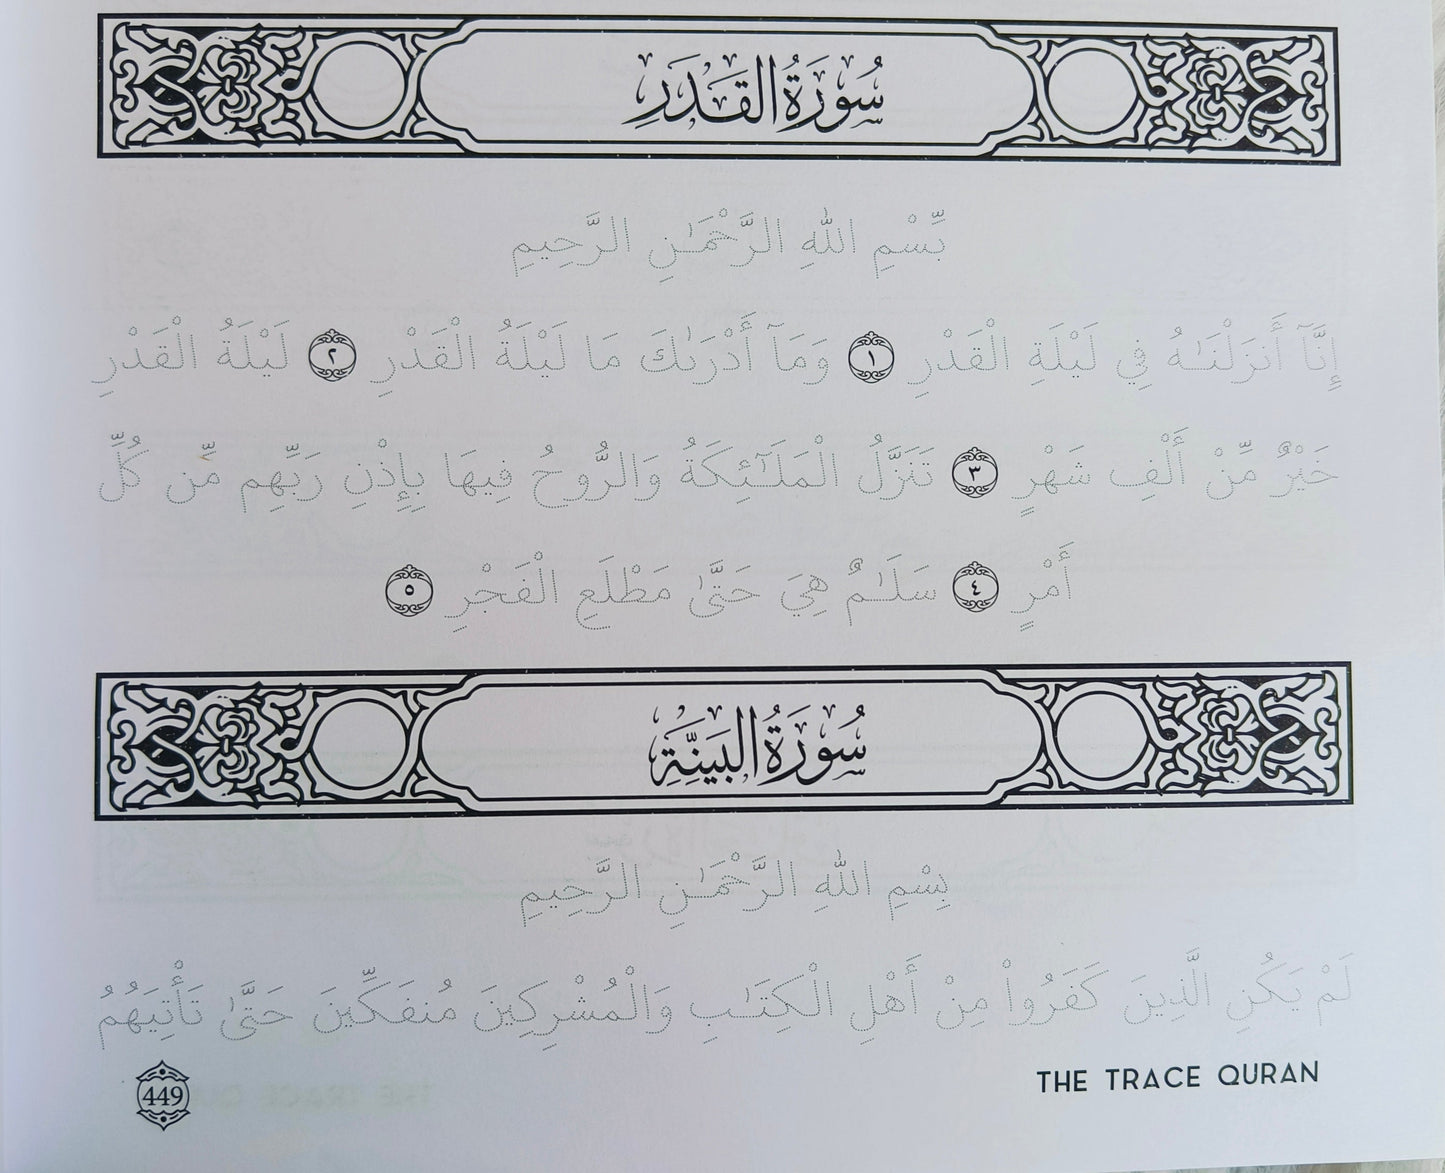 سُورَةُ القَدَرِ
بِّسْمِ اللَّهِ الرَّحْمَـٰنِ الرَّحِيمِ
إِنَّآ أَنزَلْنَـٰهُ فِي لَيْلَةِ الْقَدْرِ ١ وَمَآ أَدْرَىٰكَ مَا لَيْلَةُ الْقَدْرِ ٢ لَيْلَةُ الْقَدْرِ
خَيْرٌ مِّنْ أَلْفِ شَهْرٍ ٣ تَنَزَّلُ الْمَلَـٰٓئِكَةُ وَالرُّوحُ فِيهَا بِإِذْنِ رَبِّهِم مِّن كُلِّ
أَمْرٍ ٤ سَلَـٰمٌ هِيَ حَتَّىٰ مَطْلَعِ الْفَجْرِ ٥
سُورَةُ البَيَنِّةِ
بِسْمِ اللَّهِ الرَّحْمَـٰنِ الرَّحِيمِ
لَمْ يَكُنِ الَّذِينَ كَفَرُوا۟ مِنْ أَهْلِ الْكِتَـٰبِ وَالْمُشْرِكِينَ مُنفَكِّينَ حَتَّىٰ تَأْتِيَهُمُ
449
THE TRACE QURAN